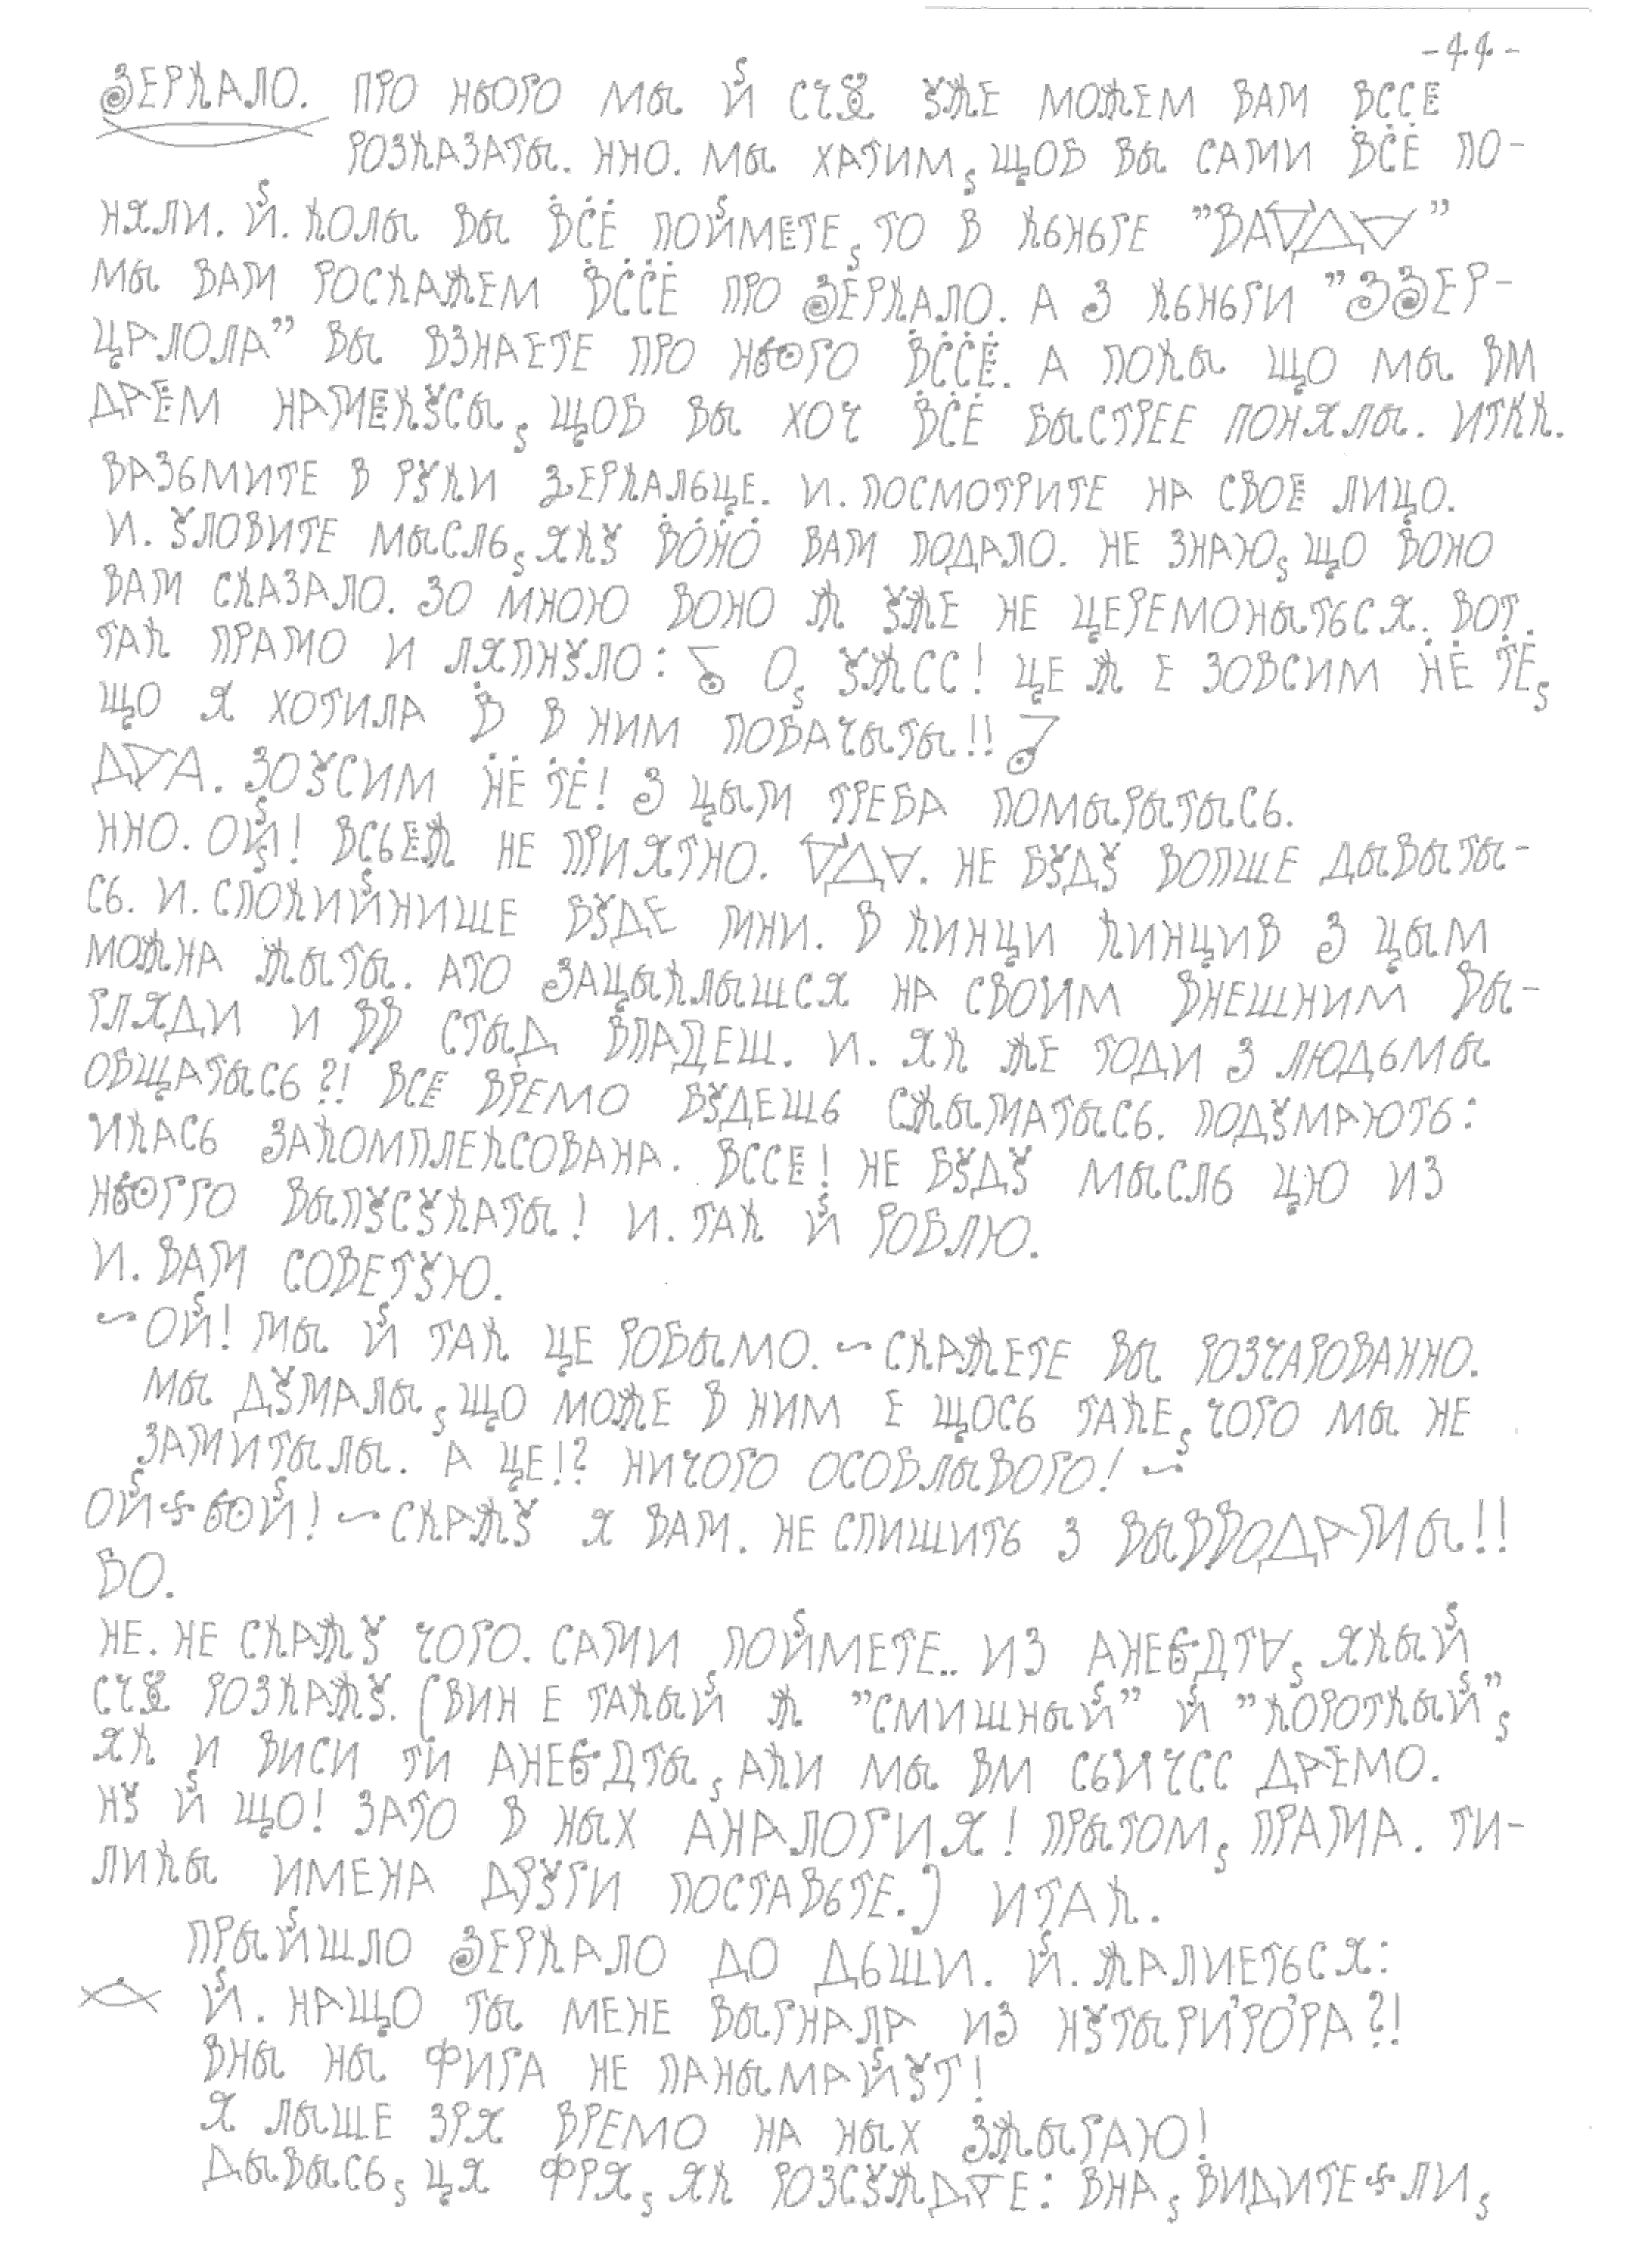 -44-
ЗЕРКАЛО. ПРО НЬОГО МЫ Й СЧ УЖЕ МОЖЕМ ВАМ ВССЕ
РОЗКАЗАТЫ. ННО. МЫ ХАТИМ, ЩОБ ВЫ САМИ ВСЕ ПО-
НЯЛИ. Й. КОЛЫ ВЫ ВСЕ ПОЙМЕТЕ, ТО В КЬНЬГЕ
МЫ ВАМ РОСКАЖЕМ ВССЕ ПРО ЗЕРКАЛО. А З КЬНЬГИ "ЗЗЕР-
ЦАЛОЛА" ВЫ ВЗНАЕТЕ ПРО НЬОГО ВССЕ. А ПОКЫ ЩО МЫ ВМ
ДАЕМ НАМЕКУСЫ, ЩОБ ВЫ ХОЧ ВСЕ БЫСТРЕЕ ПОНЯЛЫ. ИТКК.
ВАЗЬМИТЕ В РУКИ ЗЕРКАЛЬЦЕ. И. ПОСМОТРИТЕ НА СВОЕ ЛИЦО.
И. УЛОВИТЕ МЫСЛЬ, ЯКУ ВОНО ВАМ ПОДАЛО. НЕ ЗНАЮ, ЩО ВОНО
ВАМ СКАЗАЛО. ЗО МНОЮ ВОНО Ж УЖЕ НЕ ЦЕРЕМОНЫТЬСЯ. ВОТ.
ТАК ПРАМО И ЛЯПНУЛО: О, УЖСС! ЦЕ Ж Е ЗОВСИМ НЕ ТЕ,
ЩО Я ХОТИЛА В В НИМ ПОБАЧЫТЫ!!
ДАА. ЗОУСИМ НЕ ТЕ! З ЦЫМ ТРЕБА ПОМЫРЫТЫСЬ.
ННО. ОЙ! ВСЬЕЖ НЕ ПРИЯТНО. НЕ БУДУ ВОПШЕ ДЫВЫТЫ-
СЬ. И. СПОКИЙНИШЕ БУДЕ МНИ. В КИНЦИ КИНЦИВ З ЦЫМ
МОЖНА ЖЫТЫ. АТО ЗАЦЫКЛЫШСЯ НА СВОИМ ВНЕШНИМ ВЫ-
ГЛЯДИ И ВВ СТЫД ВПАДЕШ. И. ЯК ЖЕ ТОДИ З ЛЮДЬМЫ
ОБЩАТЫСЬ?! ВСЕ ВРЕМО БУДЕШЬ СЖЫМАТЫСЬ. ПОДУМАЮТЬ:
ИКАСЬ ЗАКОМПЛЕКСОВАНА. ВССЕ! НЕ БУДУ МЫСЛЬ ЦЮ ИЗ
НЬОГГО ВЫПУСУКАТЫ! И. ТАК Й РОБЛЮ.
И. ВАМ СОВЕТУЮ.
~ОЙ! МЫ Й ТАК ЦЕ РОБЫМО. ~СКАЖЕТЕ ВЫ РОЗЧАРОВАННО.
МЫ ДУМАЛЫ, ЩО МОЖЕ В НИМ Е ЩОСЬ ТАКЕ, ЧОГО МЫ НЕ
ЗАМИТЫЛЫ. А ЦЕ!? НИЧОГО ОСОБЛЫВОГО! ~
ОЙ-ЬОЙ! ~СКАЖУ Я ВАМ. НЕ СПИШИТЬ З ВЫВВОДАМЫ!!
БО.
НЕ. НЕ СКАЖУ ЧОГО. САМИ ПОЙМЕТЕ.. ИЗ ЯКЫЙ
СЧ РОЗКАЖУ. (ВИН Е ТАКЫЙ Ж "СМИШНЫЙ" Й "КОРОТКЫЙ",
ЯК И ВИСИ ТИ АКИ МЫ ВМ СЬИЧСС ДАЕМО.
НУ Й ЩО! ЗАТО В НЫХ АНАЛОГИЯ! ПРЫТОМ, ПРАМА. ТИ-
ЛИКЫ ИМЕНА ДРУГИ ПОСТАВЬТЕ.) ИТАК.
ПРЫЙШЛО ЗЕРКАЛО ДО ДЬШИ. Й. ЖАЛИЕТЬСЯ:
Й. НАЩО ТЫ МЕНЕ ВЫГНАЛА ИЗ НУТЫРИ'РО'РА?!
ВНЫ НЫ ФИГА НЕ ПАНЫМАЙУТ!
Я ЛЫШЕ ЗРЯ ВРЕМО НА НЫХ ЗЖЫГАЮ!
ДЫВЫСЬ, ЦЯ ФРЯ, ЯК РОЗСУЖДАЕ: ВНА, ВИДИТЕ-ЛИ,